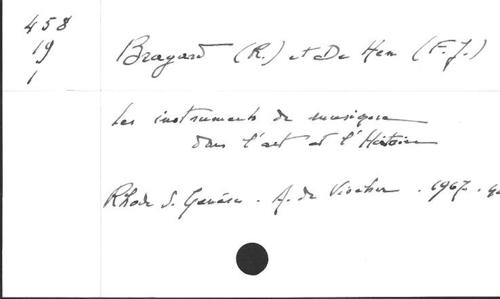 458
19
1
Bragard (R.) et De Hen (F.J.)
Les instruments de musique
dans l'art et l'Histoire
Rhode S. Genèse. A. de Visscher. 1967.